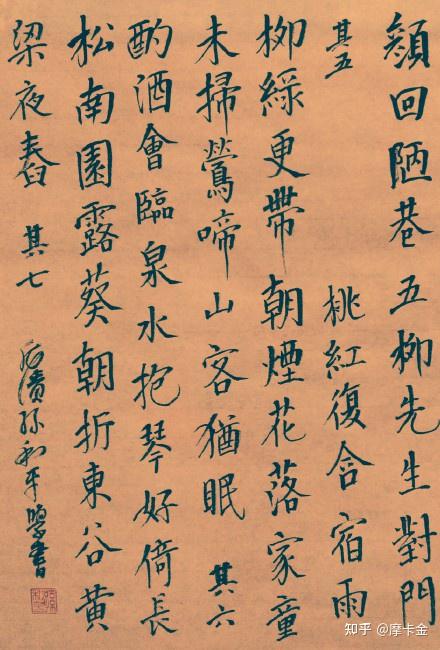 顏回陋巷五柳先生對門
其五
桃紅復含宿雨
柳綠更帶朝煙花落家童
未掃鶯啼山客猶眠
其六
酌酒會臨泉水抱琴好倚長
松南園露葵朝折東谷黃
梁夜舂
其七
孫和平學書
知乎 @摩卡金